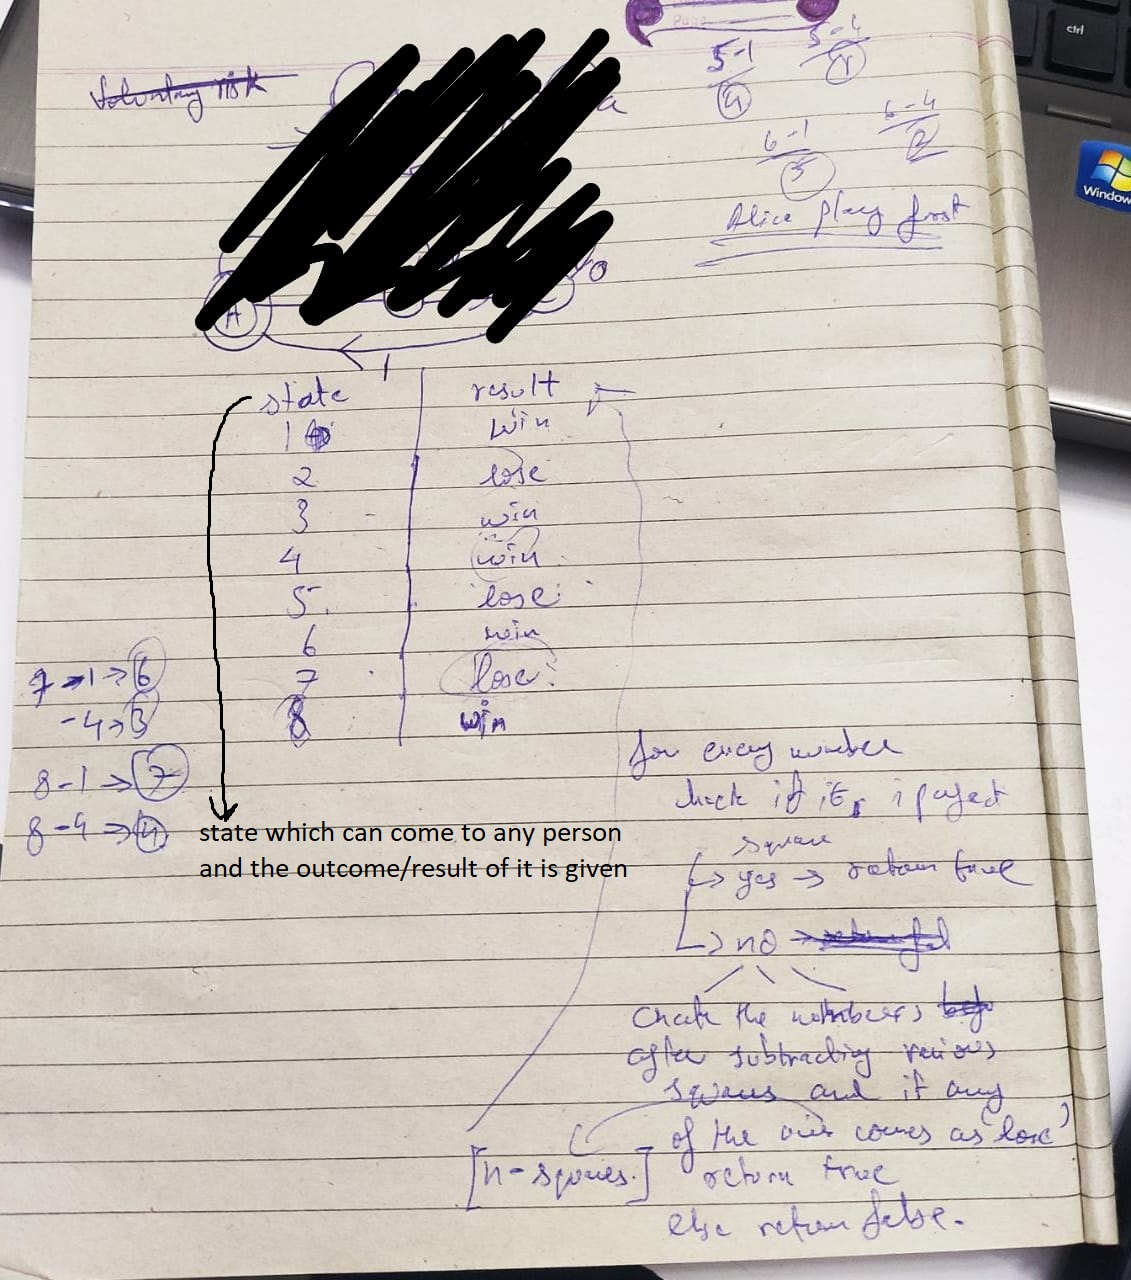 Page
ctrl
Windows
Voluntary risk
5-1
4
5-4
1
6-1
5
6-4
2
Alice play first
A
0
1
state | result
1 win
2 lose
3 win
4 win
5 lose
6 win
7 lose
8 win
7 -> 1 -> 6
-4 -> 3
8-1 -> 7
8-4 -> 4
state which can come to any person
and the outcome/result of it is given
for every number
check if it is perfect
square
-> yes -> return true
-> no ->
Check the numbers
after subtracting various
squares and if any
of the comes as 'lose'
[n-squares.] return true
else return false.